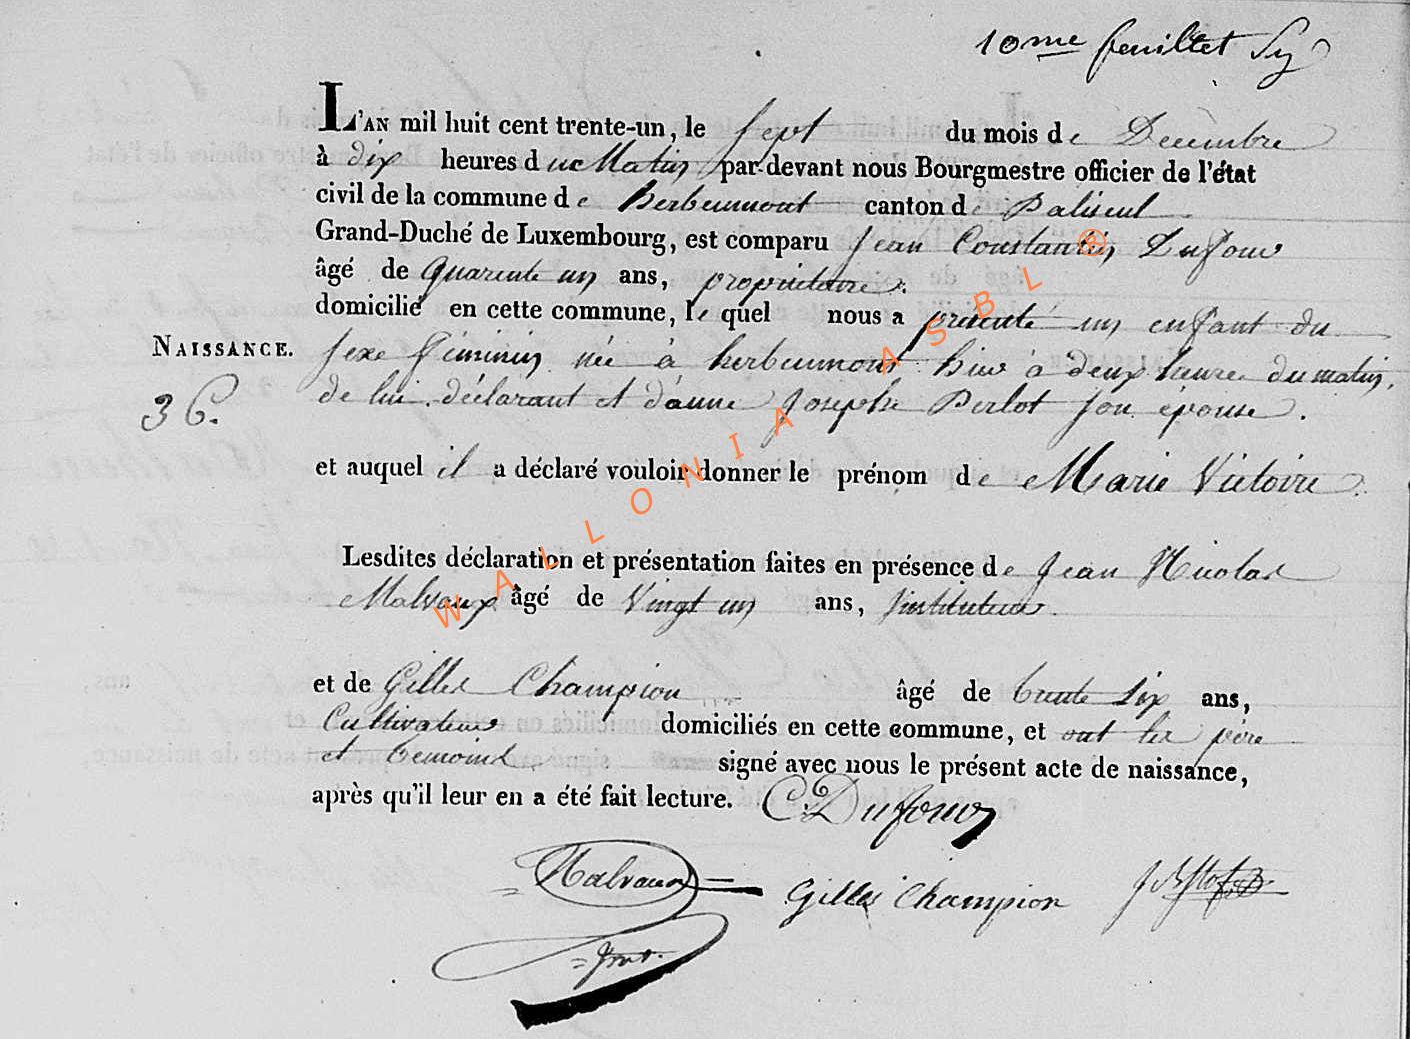 10me feuillet
L'AN mil huit cent trente-un, le Sept du mois de Decembre
à dix heures du Matin par-devant nous Bourgmestre officier de l'état
civil de la commune de Herbeumont canton de Paliseul
Grand-Duché de Luxembourg, est comparu Jean Constantin Dufour
âgé de Quarente un ans, propriétaire.
domicilié en cette commune, le quel nous a présenté un enfant du
NAISSANCE. sexe féminin née à herbeumont hier à deux heure du matin,
36. de lui déclarant et d'anne Josephe Perlot son épouse.
et auquel il a déclaré vouloir donner le prénom de Marie Victoire.
Lesdites déclaration et présentation faites en présence de Jean Nicolas
Malvaux âgé de Vingt un ans, Instituteur.
et de Gilles Champion âgé de trente Six ans,
Cultivateur domiciliés en cette commune, et ont les père
et temoins signé avec nous le présent acte de naissance,
après qu'il leur en a été fait lecture. C. Dufour
Malvaux Gilles Champion
WALLONIA ASBL ®